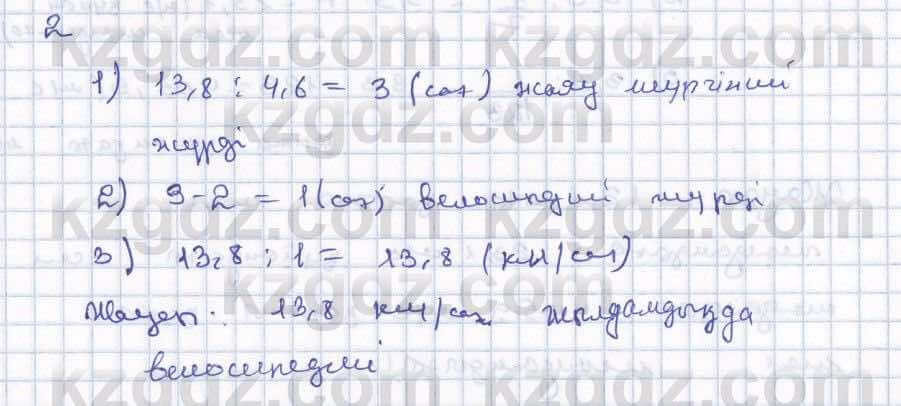 2
1) 13,8 : 4,6 = 3 (сағ) жаяу жүргінші
жүрді
2) 3-2 = 1 (сағ) велосипедші жүрді
3) 13,8 : 1 = 13,8 (км/сағ)
Жауап: 13,8 км/сағ жылдамдықда
велосипедші
kzgdz.com kzgdz.com
kzgdz.com kzgdz.com
kzgdz.com kzgdz.com
kzgdz.com kzgdz.com
kzgdz.com kzgdz.com